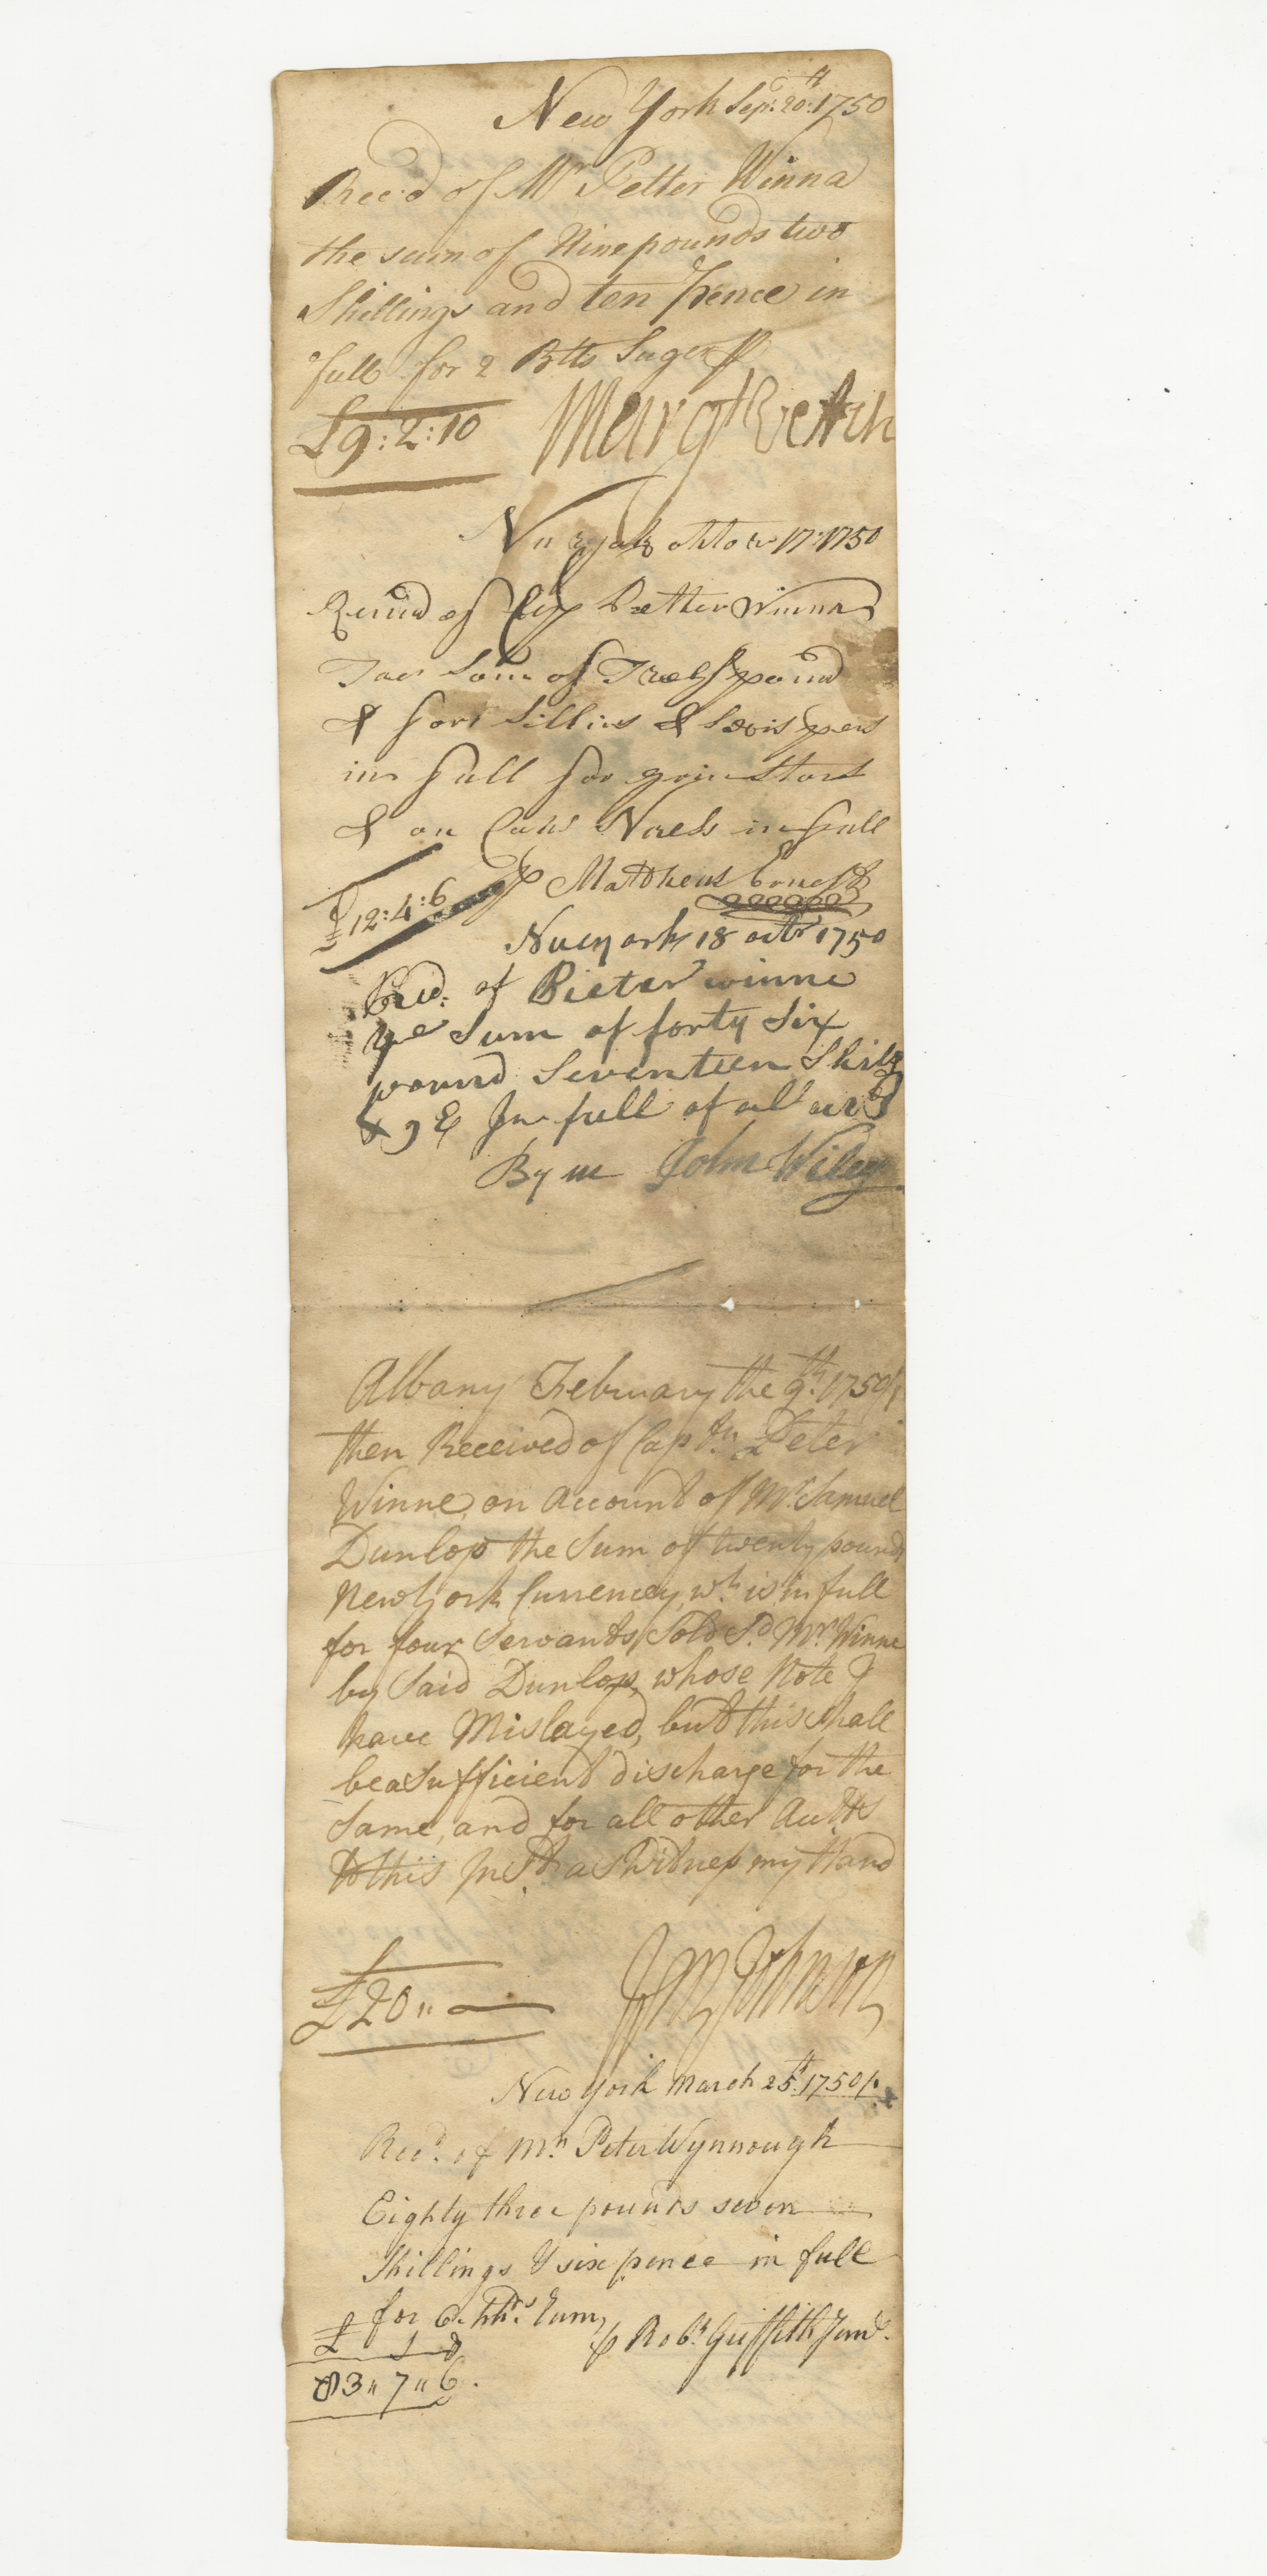 New York Sepr. 20th: 1750
Rec'd of Mr Petter Winna
the sum of Nine pounds two
Shillings and ten pence in
full for 2 Btts Suger ℔
£9:2:10 Margt Vetch
Nu york octob 17: 1750
of Petter Winna
Som of Twelf pound
& for Sillins & Sixis pens
in full for grin Ston
& on in full
£12:4:6 ℔ Mattheus Ernest
Nuey ork 18 octbr 1750
Recd: of Pieter winne
ye Sum of forty Six
pound Seventeen Shilg
& 9 d In full of al acts
By me John Wiley
Albany February the 9th: 1750/1
then Received of Captn. Peter
Winne, on Account of Mr. Samuel
Dunlop the Sum of twenty pounds
New York Currencey, wh. is in full
for four Servants Sold Sd. Mr. Winne
by Said Dunlop, whose Note I
have Mislayed, but this shall
be a Sufficient discharge for the
Same, and for all other Acctts
to this Inst. as Witness my Hand
£20 " — Johnson
New York March 25th. 1750/1
Recd. of Mr. Peter Wynnough
Eighty three pounds seven
Shillings & six pence in full
for 6. hhds. Rum,
£ s d ℔ Robt. Griffith Junr.
83 " 7 " 6.